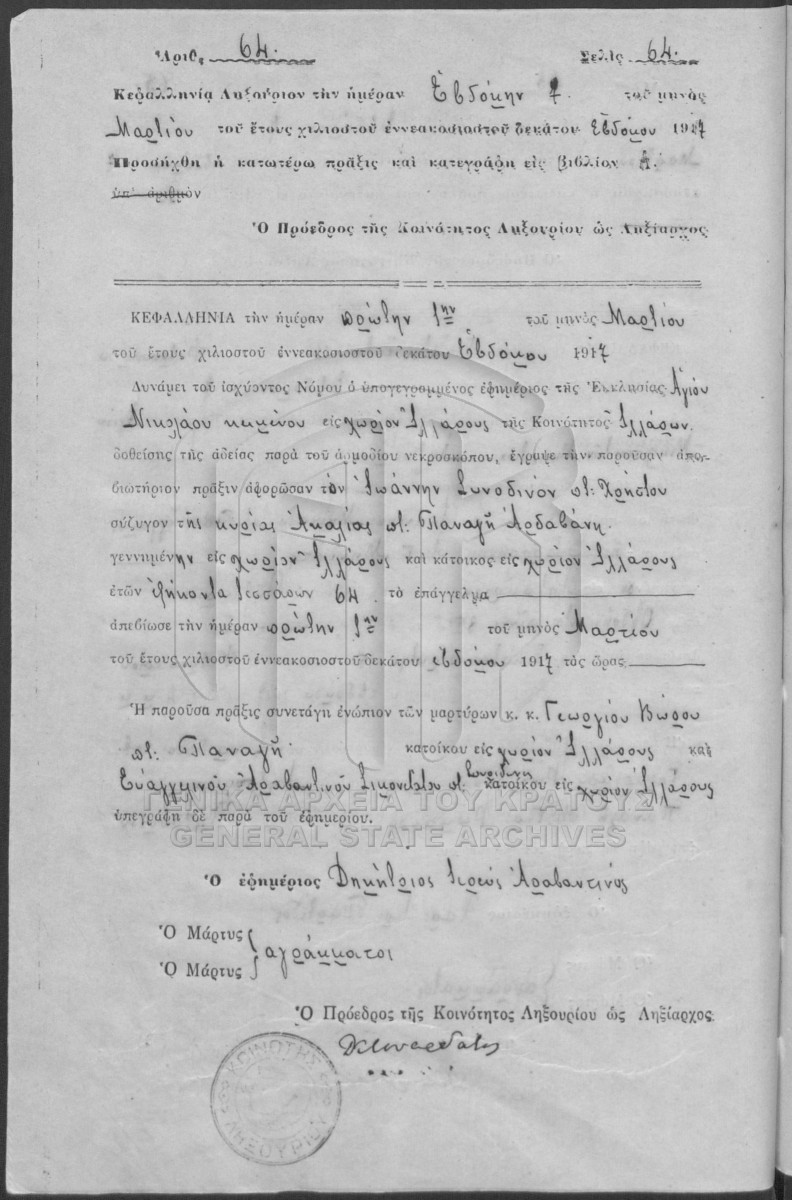 Ἀριθ. 64. Σελὶς 64.
Κεφαλληνία Ληξούριον τὴν ἡμέραν Ἑβδόμην 7. τοῦ μηνὸς
Μαρτίου τοῦ ἔτους χιλιοστοῦ ἐννεακοσιαστοῦ δεκάτου Ἑβδόμου 1917
Προσήχθη ἡ κατωτέρω πρᾶξις καὶ κατεγράφη εἰς βιβλίον Α.
ὑπ' ἀριθμὸν
Ὁ Πρόεδρος τῆς Κοινότητος Ληξουρίου ὡς Ληξίαρχος
ΚΕΦΑΛΛΗΝΙΑ τὴν ἡμέραν πρώτην 1ην τοῦ μηνὸς Μαρτίου
τοῦ ἔτους χιλιοστοῦ ἐννεακοσιοστοῦ δεκάτου Ἑβδόμου 1917
Δυνάμει τοῦ ἰσχύοντος Νόμου ὁ ὑπογεγραμμένος ἐφημέριος τῆς Ἐκκλησίας Ἁγίου
Νικολάου κειμένου εἰς χωρίον τῆς Κοινότητος
δοθείσης τῆς ἀδείας παρὰ τοῦ ἁρμοδίου νεκροσκόπου, ἔγραψε τὴν παροῦσαν ἀπο-
βιωτήριον πρᾶξιν ἀφορῶσαν τὸν Ἰωάννην Συνοδινὸν ποτ: Χρήστου
σύζυγον τῆς κυρίας Ἀμαλίας ποτ: Παναγῆ Ἀρδαβάνη.
γεννημένην εἰς χωρίον καὶ κάτοικος εἰς χωρίον
ἐτῶν ἑξήκοντα τεσσάρων 64 τὸ ἐπάγγελμα
ἀπεβίωσε τὴν ἡμέραν πρώτην 1ην τοῦ μηνὸς Μαρτίου
τοῦ ἔτους χιλιοστοῦ ἐννεακοσιοστοῦ δεκάτου ἑβδόμου 1917 τὰς ὥρας
Ἡ παροῦσα πρᾶξις συνετάγη ἐνώπιον τῶν μαρτύρων κ. κ. Γεωργίου
ποτ: Παναγῆ κατοίκου εἰς χωρίον καὶ
Ἀραβαντινοῦ ποτ: Σπυρίδωνος κατοίκου εἰς χωρίον
ὑπεγράφη δὲ παρὰ τοῦ ἐφημερίου.
ΓΕΝΙΚΑ ΑΡΧΕΙΑ ΤΟΥ ΚΡΑΤΟΥΣ
GENERAL STATE ARCHIVES
Ὁ ἐφημέριος Δημήτριος ἱερεὺς Ἀραβαντινός
Ὁ Μάρτυς
Ὁ Μάρτυς ἀγράμματοι
Ὁ Πρόεδρος τῆς Κοινότητος Ληξουρίου ὡς Ληξίαρχος
ΚΟΙΝΟΤΗΣ ΛΗΞΟΥΡΙΟΥ